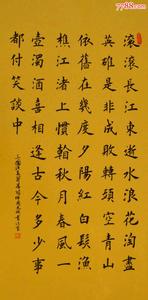 7788.com
滾滾長江東逝水浪花淘盡
英雄是非成敗轉頭空青山
依舊在幾度夕陽紅白髮漁
樵江渚上慣看秋月春風一
壺濁酒喜相逢古今多少事
都付笑談中